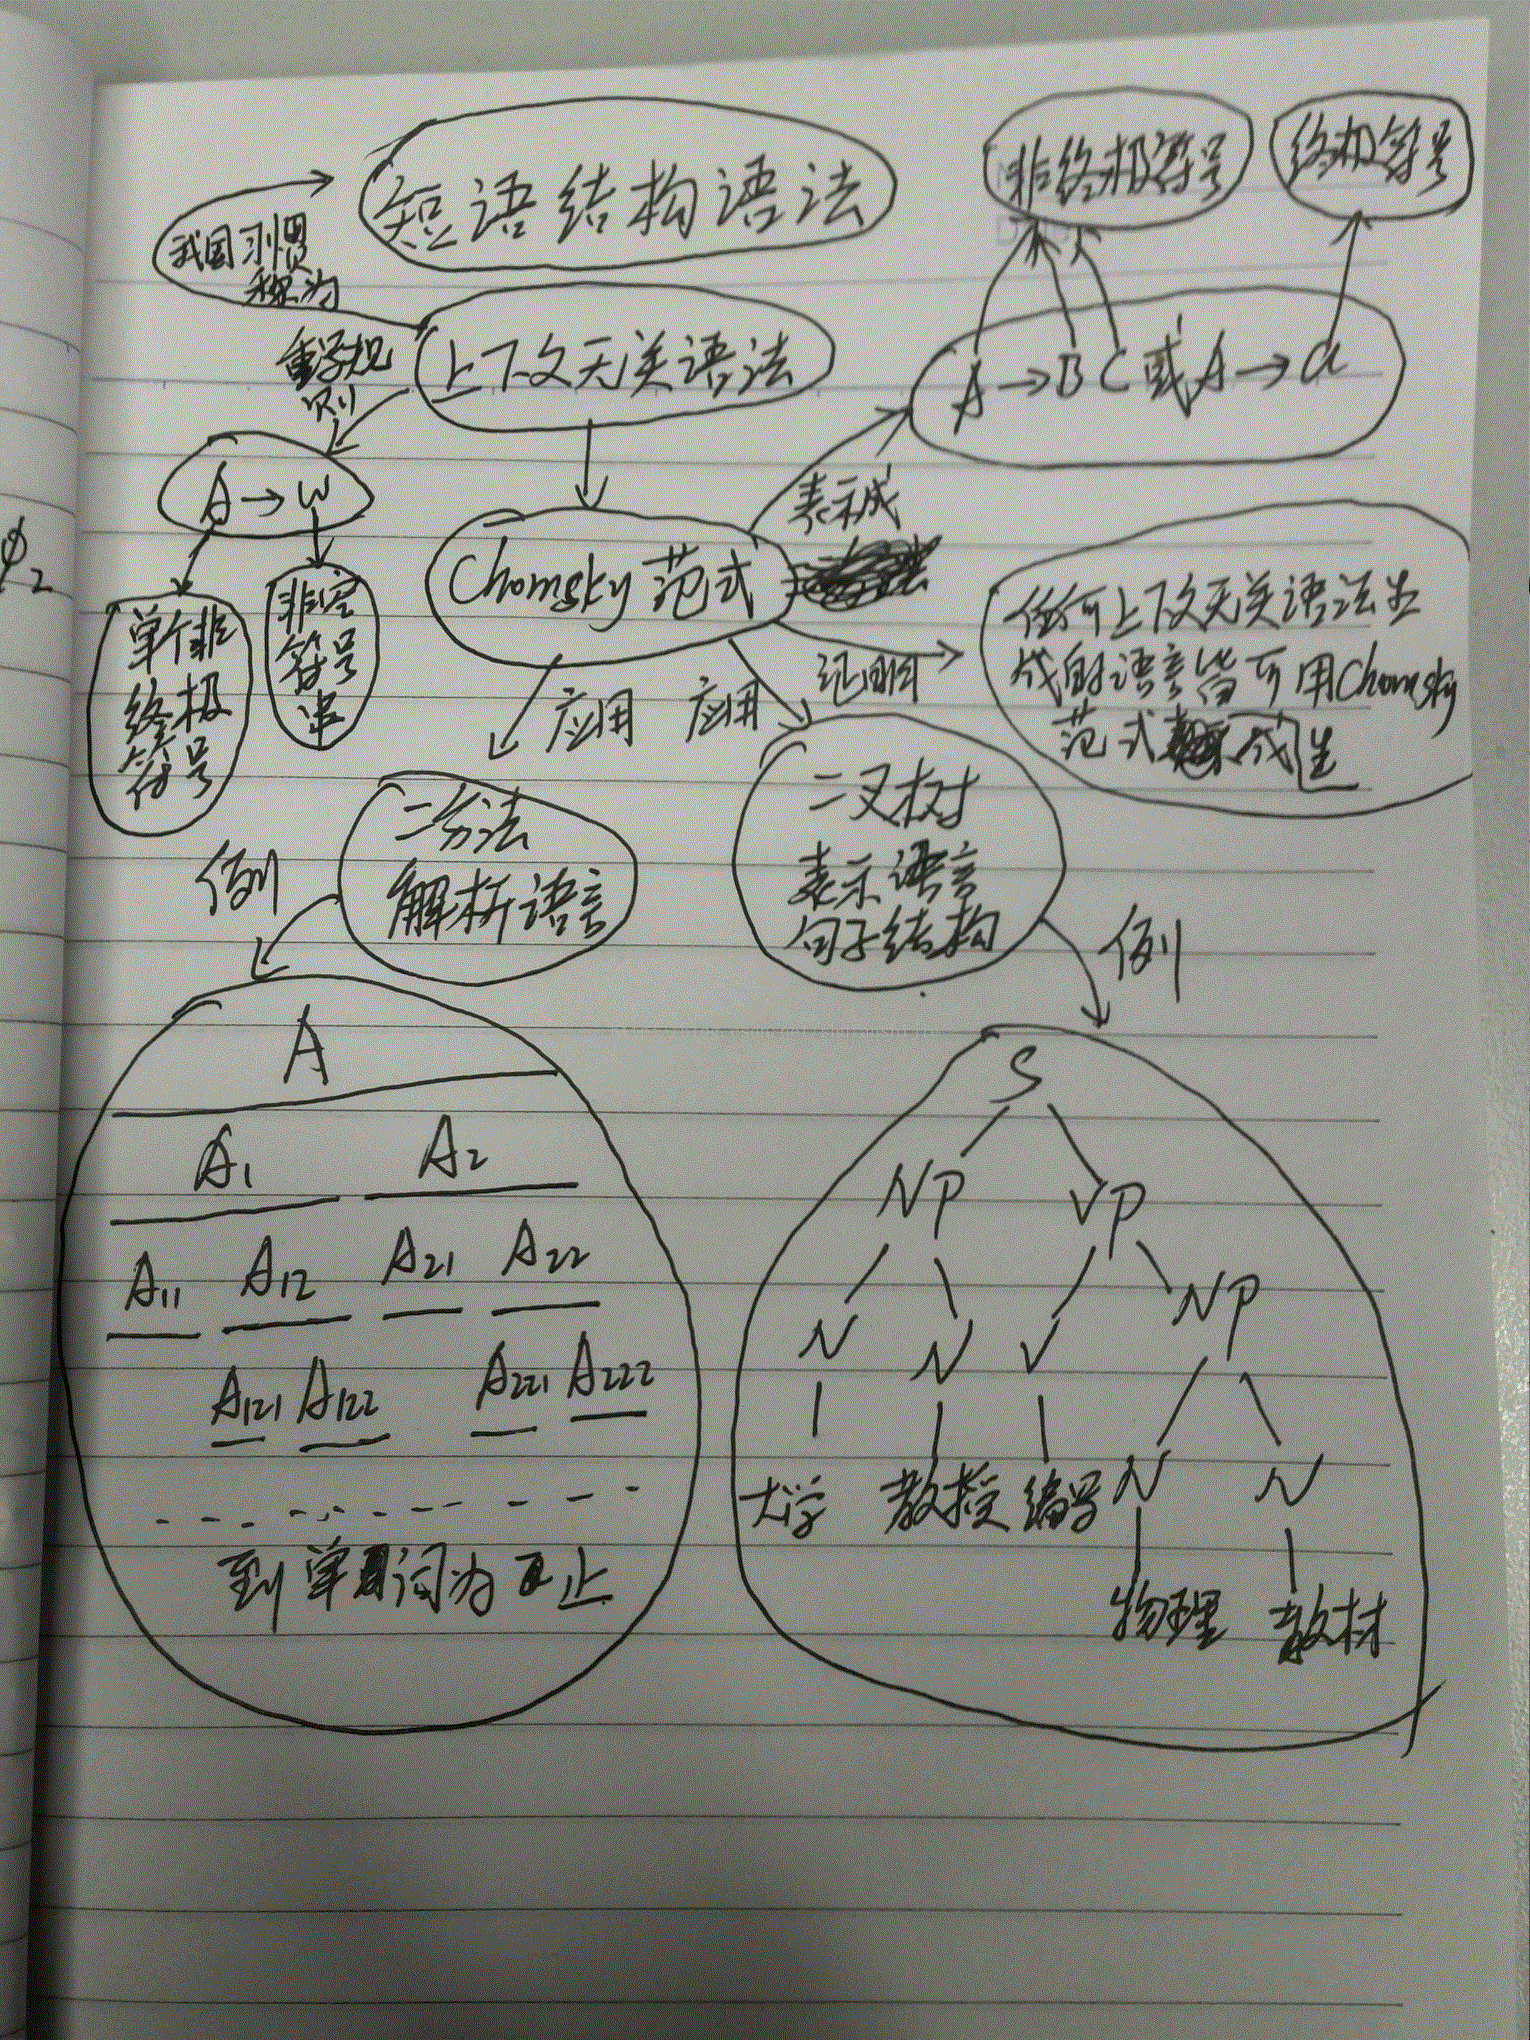 短语结构语法
非终极符号
终极符号
我国习惯
称为
上下文无关语法
重写规
则
A→BC或A→a
A→w
表示成
Chomsky范式
单个非
终极
符号
非空
符号
串
任何上下文无关语法生
成的语言皆可用Chomsky
范式
成
生
证明
应用
应用
二分法
解析语言
二叉树
表示语言
句子结构
例
例
A
A1 A2
A11 A12 A21 A22
A121 A122 A221 A222
到单词为止
S
NP VP
N N V NP
N N
大学 教授 编写
物理 教材
φ2